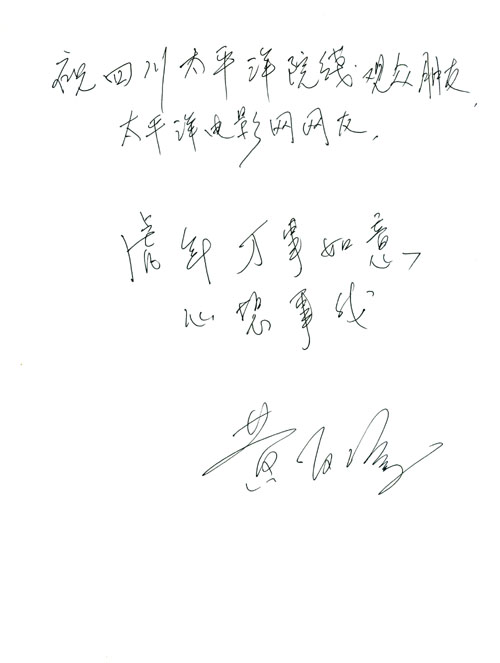 祝四川太平洋院线观众朋友,
太平洋电影网网友,
虎年万事如意,
心想事成
黄百鸣